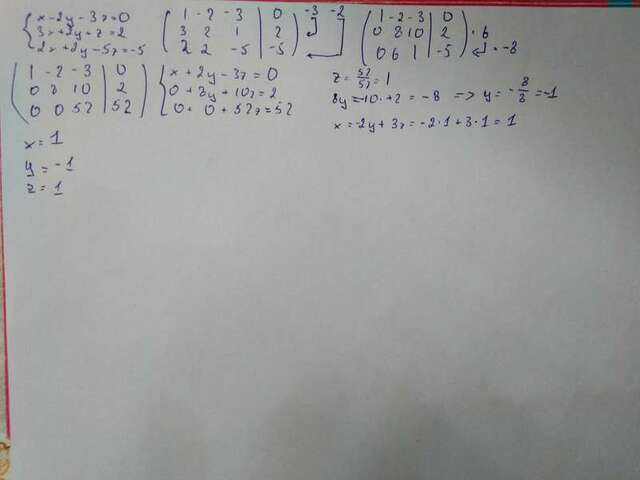 { x - 2y - 3z = 0
3x + 2y + z = 2
2x + 2y - 5z = -5
( 1 -2 -3 | 0
3 2 1 | 2
2 2 -5 | -5 ) -3 -2
( 1 -2 -3 | 0
0 8 10 | 2
0 6 1 | -5 ) · 6
· -8
( 1 -2 -3 | 0
0 8 10 | 2
0 0 52 | 52 )
{ x + 2y - 3z = 0
0 + 8y + 10z = 2
0 + 0 + 52z = 52
z = 52/52 = 1
8y = -10 + 2 = -8 => y = -8/8 = -1
x = -2y + 3z = -2·1 + 3·1 = 1
x = 1
y = -1
z = 1